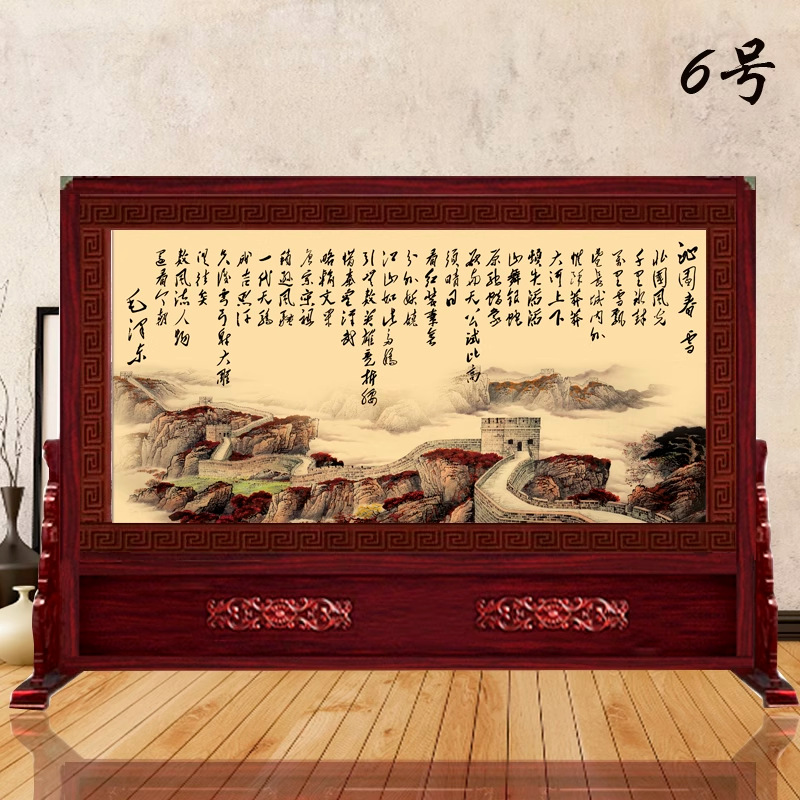 6号
沁园春 雪
北国风光
千里冰封
万里雪飘
望长城内外
惟余莽莽
大河上下
顿失滔滔
山舞银蛇
原驰蜡象
欲与天公试比高
须晴日
看红装素裹
分外妖娆
江山如此多娇
引无数英雄竞折腰
惜秦皇汉武
略输文采
唐宗宋祖
稍逊风骚
一代天骄
成吉思汗
只识弯弓射大雕
俱往矣
数风流人物
还看今朝
毛泽东